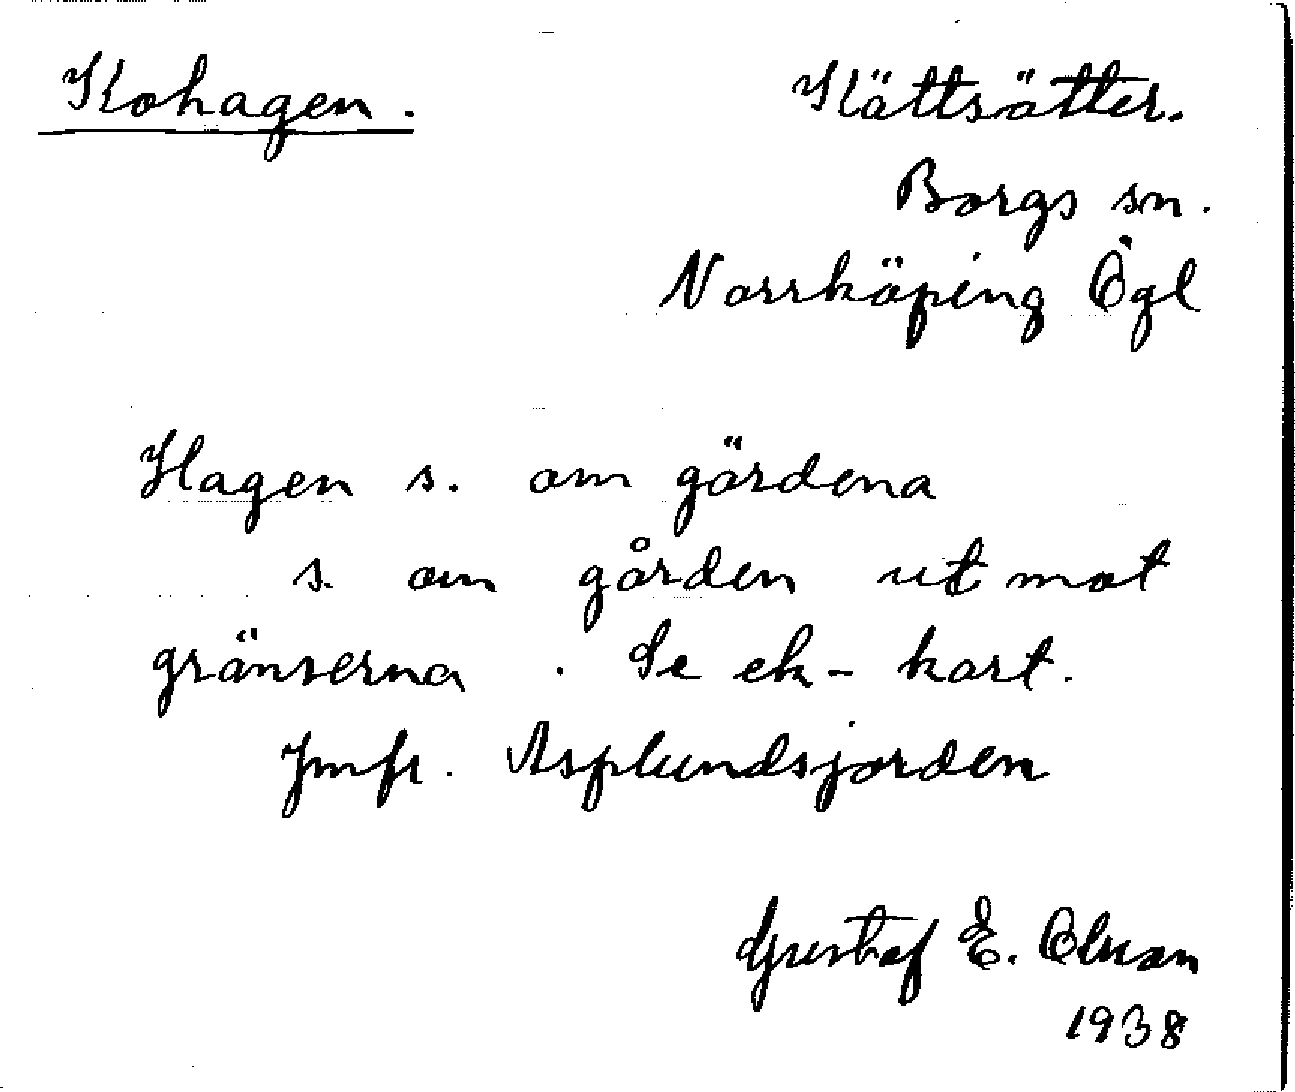 Kohagen.
Kättsätter.
Borgs sn.
Norrköping Ögl
Hagen s. om gärdena
s. om gården ut mot
gränserna. Se ek-kart.
Jmfr. Asplundsjorden
Gustaf E. Olson
1938